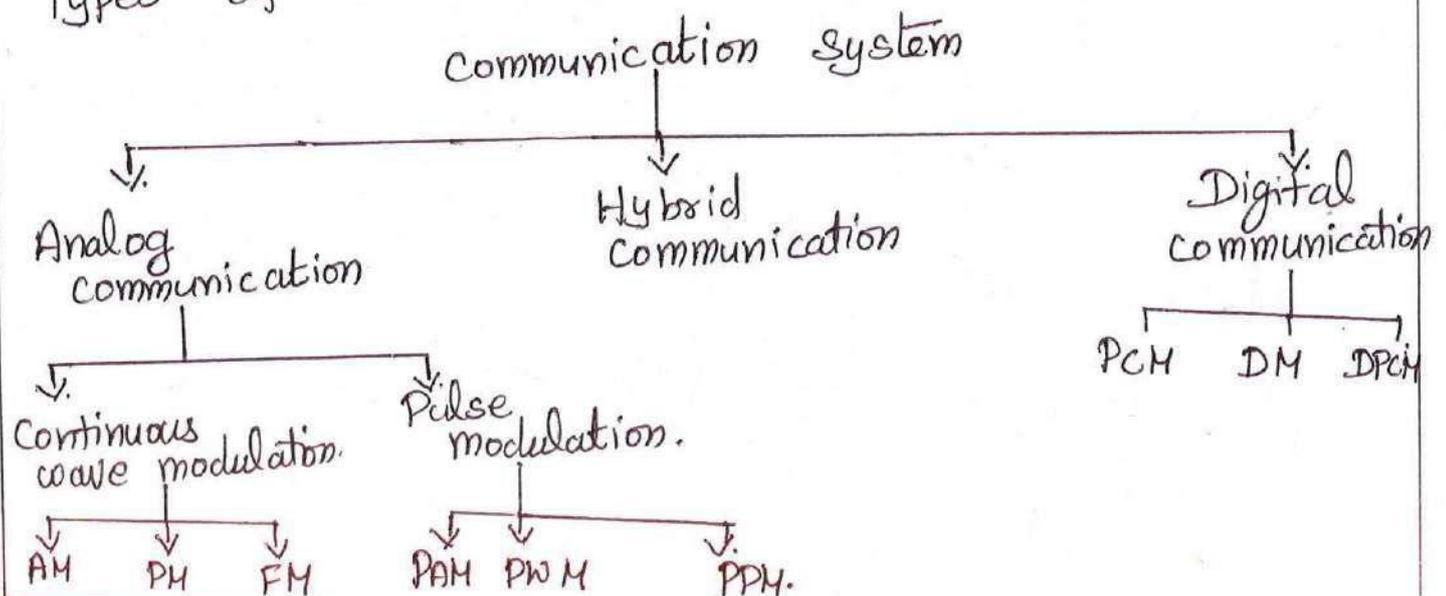 Types
Communication System
Analog
communication
Hybrid
communication
Digital
communication
PCM DM DPCM
Continuous
wave modulation.
Pulse
modulation.
AM PM FM
PAM PWM PPM.